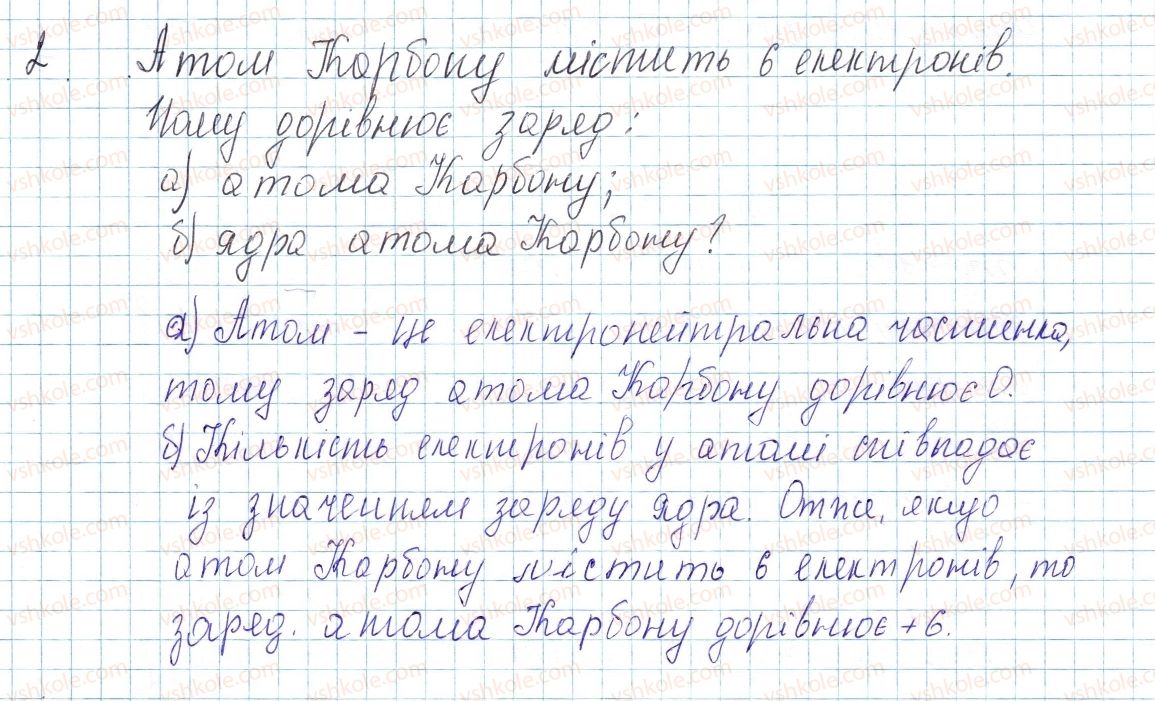 2. Атом Карбону містить 6 електронів.
Чому дорівнює заряд:
а) атома Карбону;
б) ядра атома Карбону?
а) Атом - це електронейтральна частинка,
тому заряд атома Карбону дорівнює 0.
б) Кількість електронів у атомі співпадає
із значенням заряду ядра. Отже, якщо
атом Карбону містить 6 електронів, то
заряд. атома Карбону дорівнює +6.